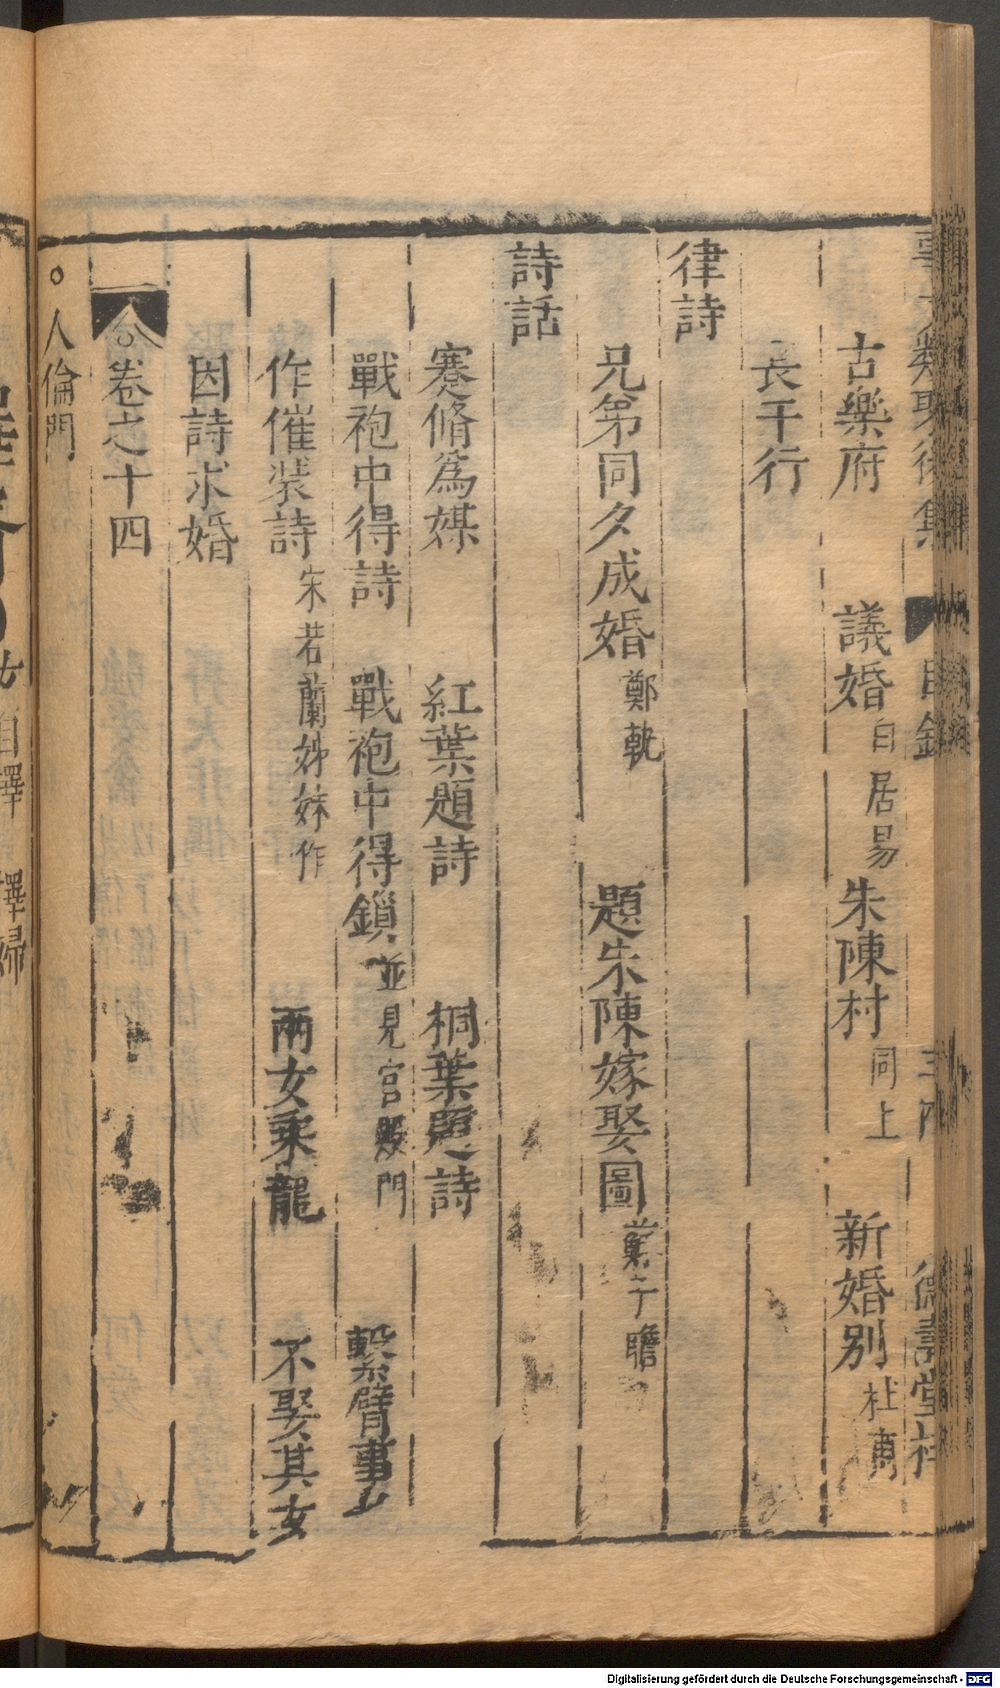 事文類聚後集 目錄 德壽堂梓
古樂府 議婚 白居易 朱陳村 同上 新婚別 杜甫
長干行
律詩
兄弟同夕成婚 鄭軌 題朱陳嫁娶圖 子瞻
詩話
蹇脩為媒 紅葉題詩 桐葉題詩
戰袍中得詩 戰袍中得鎖 並見宮殿門 繫臂事
作催裝詩 宋若蘭姊妹作 兩女乘龍 不娶其女
因詩求婚
卷之十四
○人倫門
自擇 擇婦
Digitalisierung gefördert durch die Deutsche Forschungsgemeinschaft - DFG